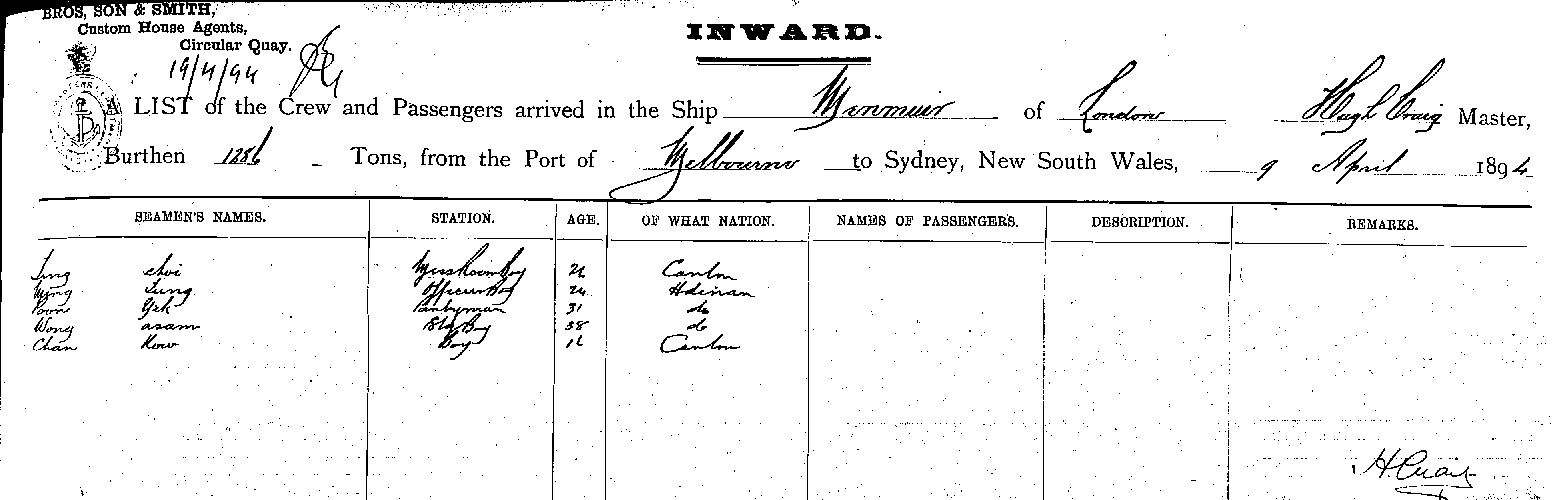 BROS, SON & SMITH,
Custom House Agents,
Circular Quay.
19/4/94
INWARD.
A LIST of the Crew and Passengers arrived in the Ship Menmuir of London Hugh Craig Master,
Burthen 1286 Tons, from the Port of Melbourne to Sydney, New South Wales, 9 April 1894
SEAMEN'S NAMES. STATION. AGE. OF WHAT NATION. NAMES OF PASSENGERS. DESCRIPTION. REMARKS.
choi Messroom Boy Canton
Ming Sung Officers Boy 24 Hainan
Poon Yek Pantryman 31 do
Wong asam Boy 38 do
Chan Kow Boy Canton
H Craig